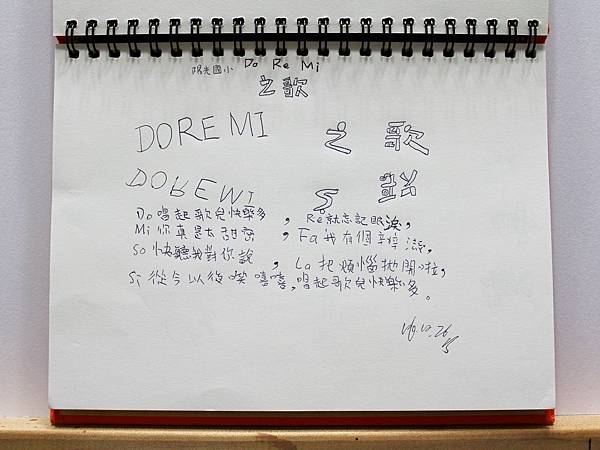 陽光國小 Do Re Mi
之歌
DOREMI 之歌
DOREWI
Do唱起歌兒快樂多，Re就忘記眼淚，
Mi你真是太甜蜜，Fa我有個辛辛
So快聽我對你說，La把煩惱拋開啦，
Si從今以後嘻嘻，唱起歌兒快樂多。